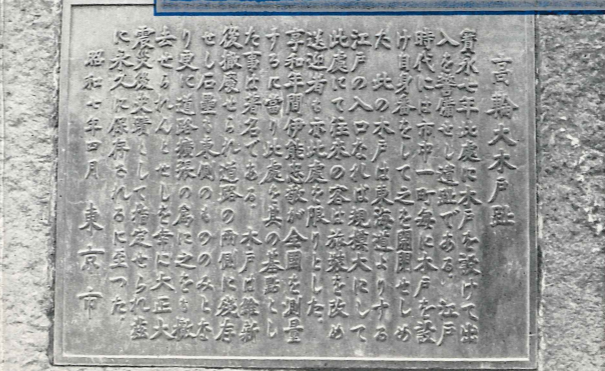 高輪大木戸趾
寶永七年此處に木戸を設けて出
入を警備せし遺趾である、江戸
時代には市中一町毎に木戸を設
け自身番をして之を開閉せしめ
た 此の木戸は東海道よりする
江戸の入口なれば規模大にして
此處にて往來の客は旅裝を改め
送迎者も亦此處を限りとした
享和年間伊能忠敬が全國を測量
するに當り此處を其の基點とし
た事は著名である 木戸は維新
後撤廢せられ道路の兩側に殘存
せし石壘も東側のもののみとな
り更に道路擴張の爲に之をも撤
去せられんとせしを幸に大正大
震災後史蹟として指定せられ
に永久に保存されるに至つた
昭和七年四月 東京市